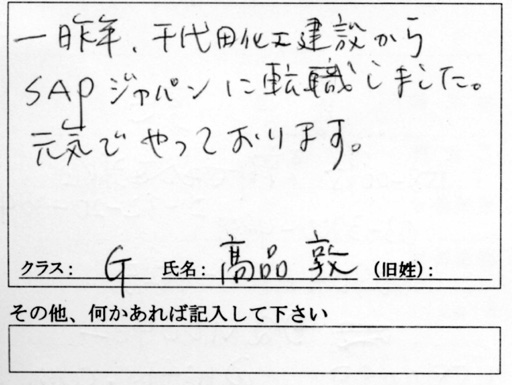 一昨年、千代田化工建設から
SAPジャパンに転職しました。
元気でやっております。
クラス： G 氏名： 高品 敦 （旧姓）：
その他、何かあれば記入して下さい